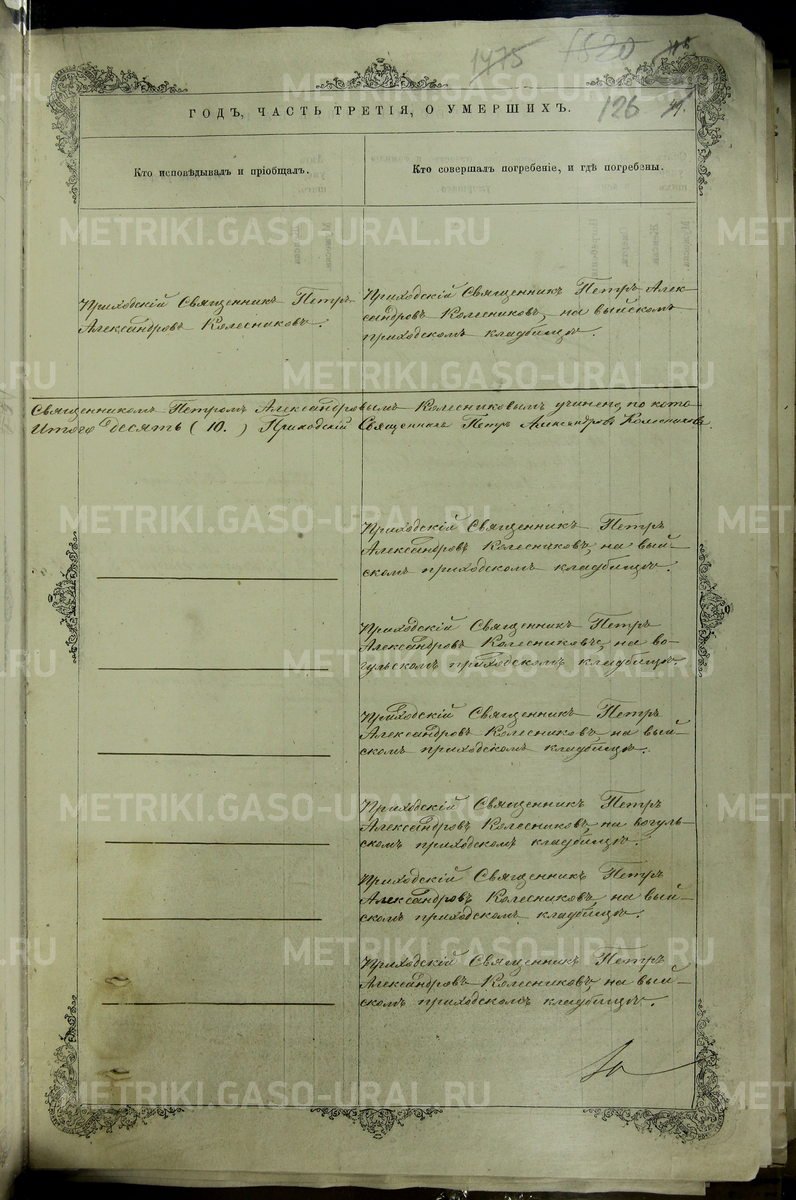 1475
1820
126
ГОДЪ, ЧАСТЬ ТРЕТІЯ, О УМЕРШИХЪ.
Кто исповѣдывалъ и пріобщалъ.
Кто совершалъ погребеніе, и гдѣ погребены.
Приходскій Священникъ Петръ
Александровъ Колесниковъ.
Приходскій Священникъ Петръ Алек-
сандровъ Колесниковъ, на выйскомъ
приходскомъ кладбищѣ.
Священникомъ Петромъ Александровымъ Колесниковымъ учинено, по кото-
Итого десять (10.) Приходскій Священникъ Петръ Александровъ Колесниковъ.
Приходскій Священникъ Петръ
Александровъ Колесниковъ, на вый-
скомъ приходскомъ кладбищѣ.
Приходскій Священникъ Петръ
Александровъ Колесниковъ, на во-
гульскомъ приходскомъ кладбищѣ.
Приходскій Священникъ Петръ
Александровъ Колесниковъ, на вый-
скомъ приходскомъ кладбищѣ.
Приходскій Священникъ Петръ
Александровъ Колесниковъ, на вогуль-
скомъ приходскомъ кладбищѣ.
Приходскій Священникъ Петръ
Александровъ Колесниковъ, на вый-
скомъ приходскомъ кладбищѣ.
Приходскій Священникъ Петръ
Александровъ Колесниковъ, на вый-
скомъ приходскомъ кладбищѣ.
METRIKI.GASO-URAL.RU